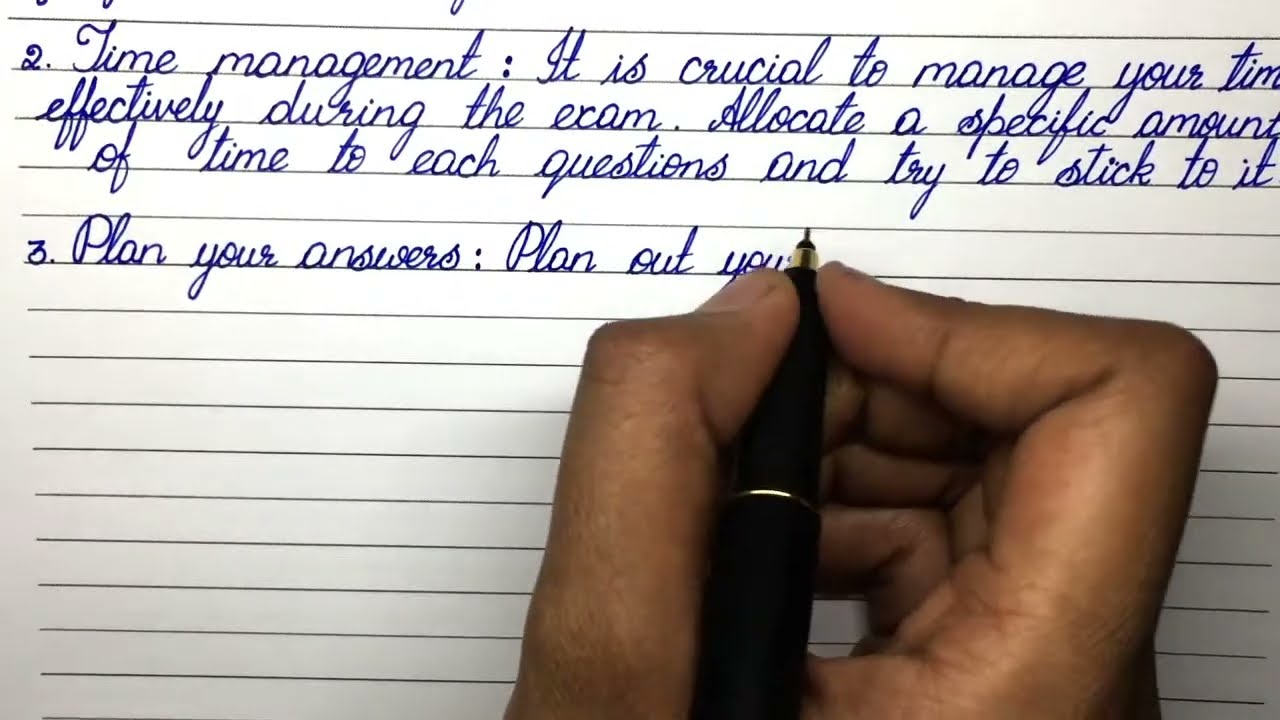 2. Time management : It is crucial to manage your tim
effectively during the exam. Allocate a specific amount
of time to each questions and try to stick to it
3. Plan your answers : Plan out you